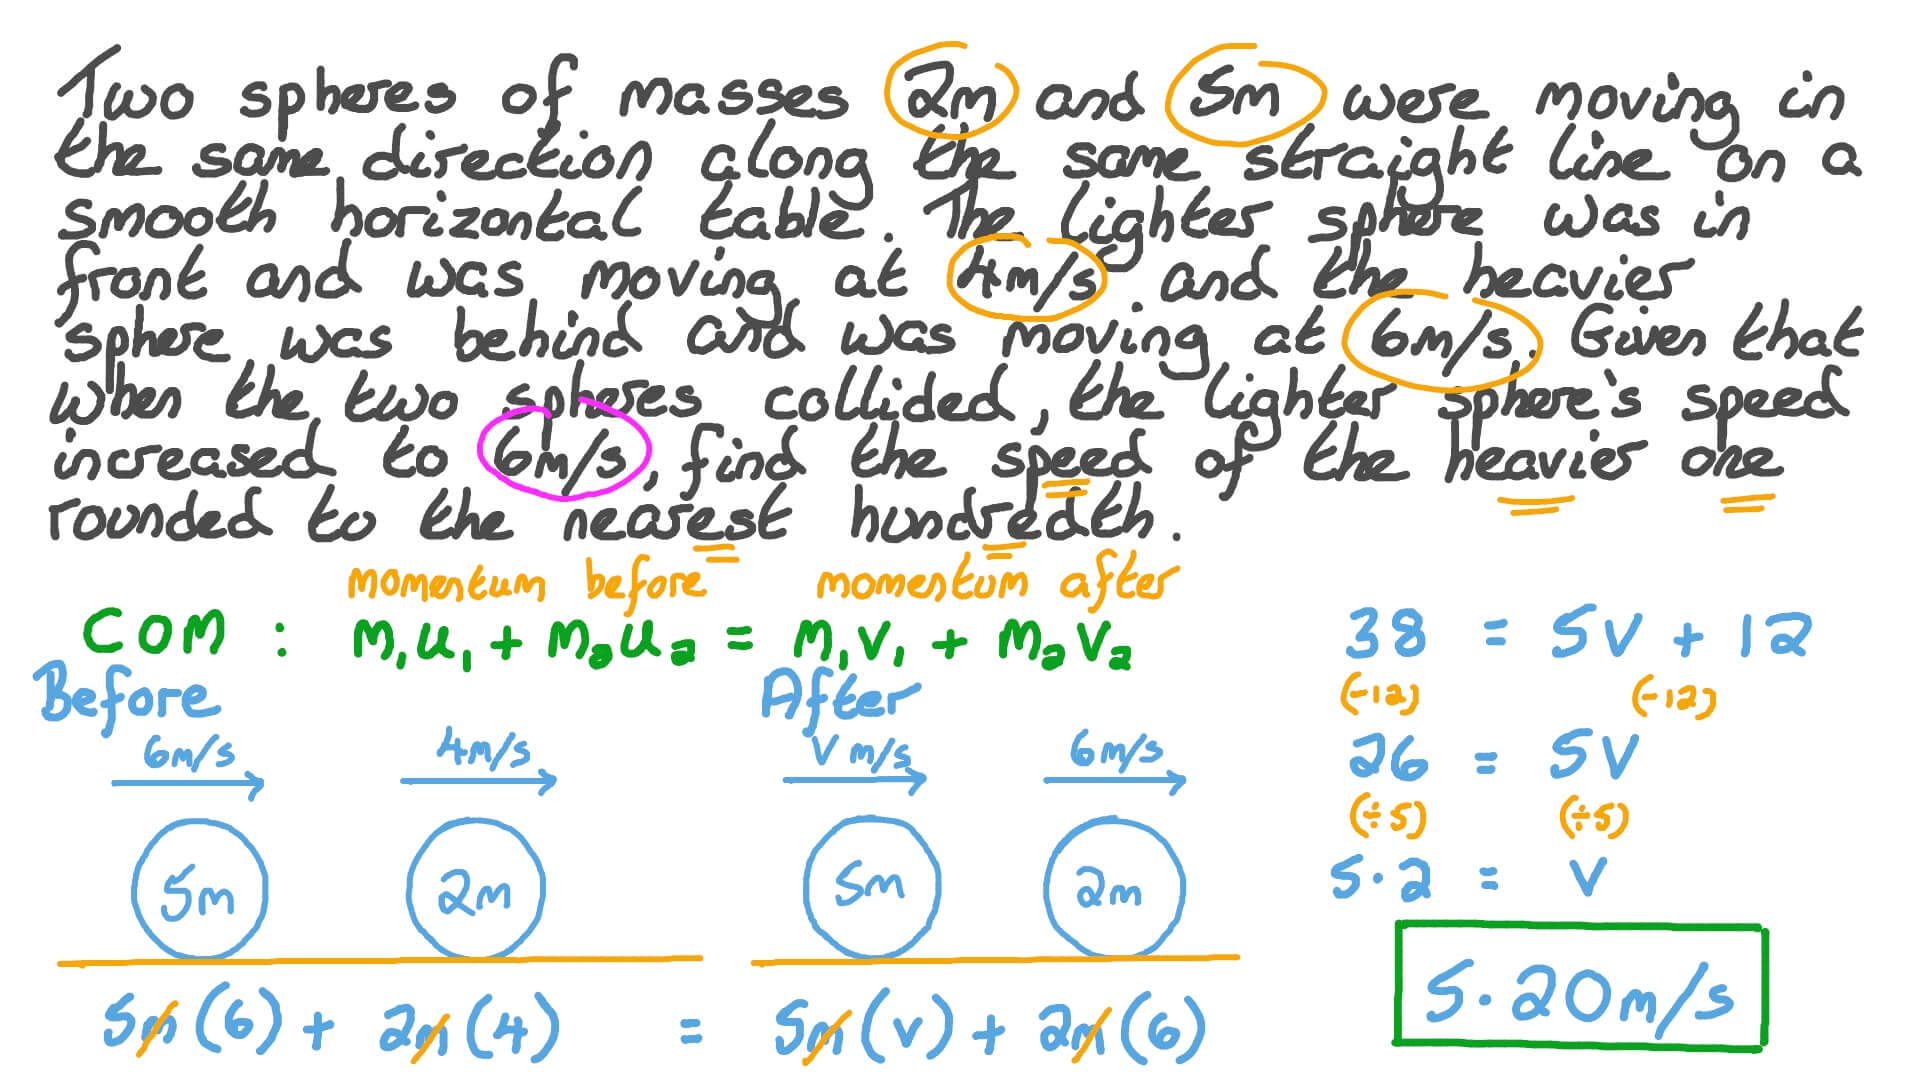 Two spheres of masses 2m and 5m were moving in
the same direction along the same straight line on a
smooth horizontal table. The lighter sphere was in
front and was moving at 4m/s and the heavier
sphere was behind and was moving at 6m/s. Given that
when the two spheres collided, the lighter sphere's speed
increased to 6m/s, find the speed of the heavier one
rounded to the nearest hundredth.
momentum before momentum after
COM : m₁u₁ + m₂u₂ = m₁v₁ + m₂v₂
Before
6m/s 4m/s
5m 2m
After
v m/s 6m/s
5m 2m
5m(6) + 2m(4) = 5m(v) + 2m(6)
38 = 5v + 12
(-12) (-12)
26 = 5v
(÷5) (÷5)
5.2 = v
5.20m/s